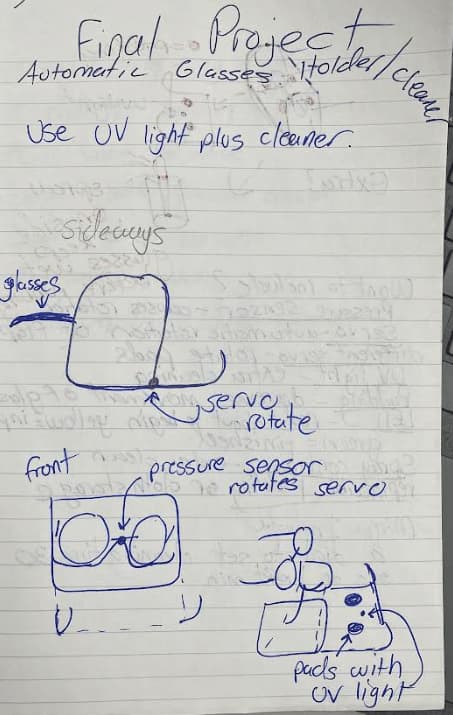 Final Project
Automatic Glasses Holder/cleaner
Use UV light plus cleaner.
Sideways
glasses
servo
rotate
front
pressure sensor
rotates servo
pads with
UV light